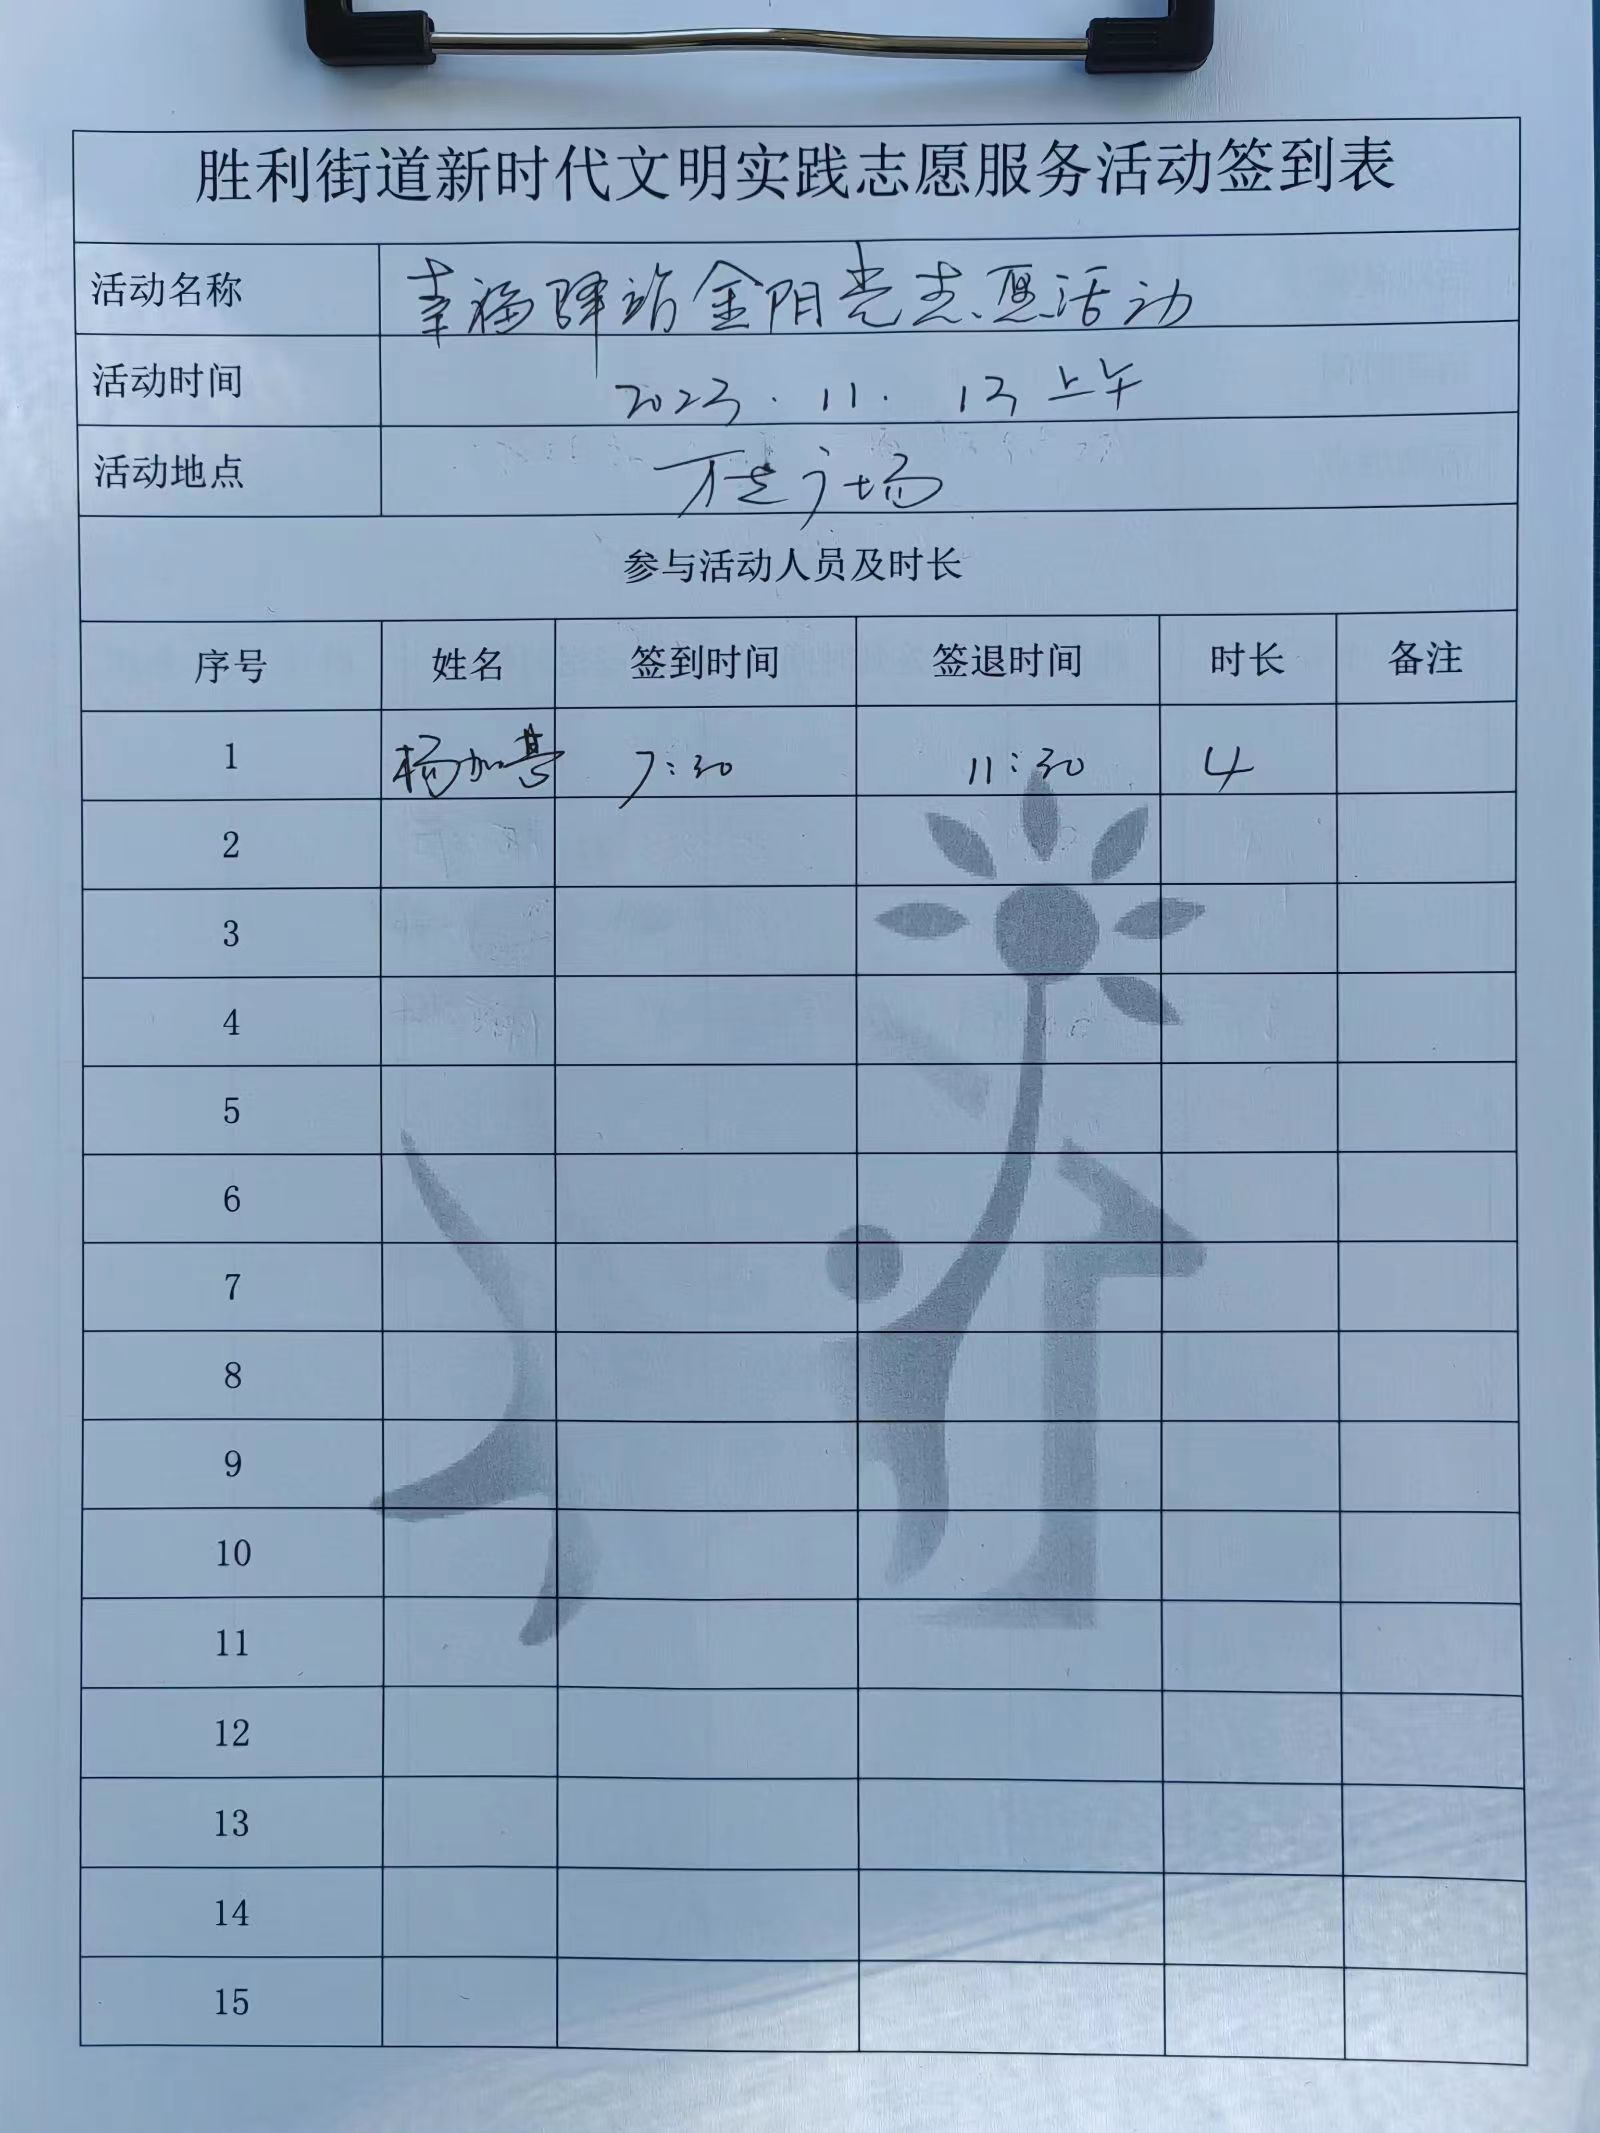 胜利街道新时代文明实践志愿服务活动签到表
活动名称 幸福驿站金阳光志愿活动
活动时间 2023.11.13 上午
活动地点 万达广场
参与活动人员及时长
序号 姓名 签到时间 签退时间 时长 备注
1 杨加 7:30 11:30 4
2
3
4
5
6
7
8
9
10
11
12
13
14
15